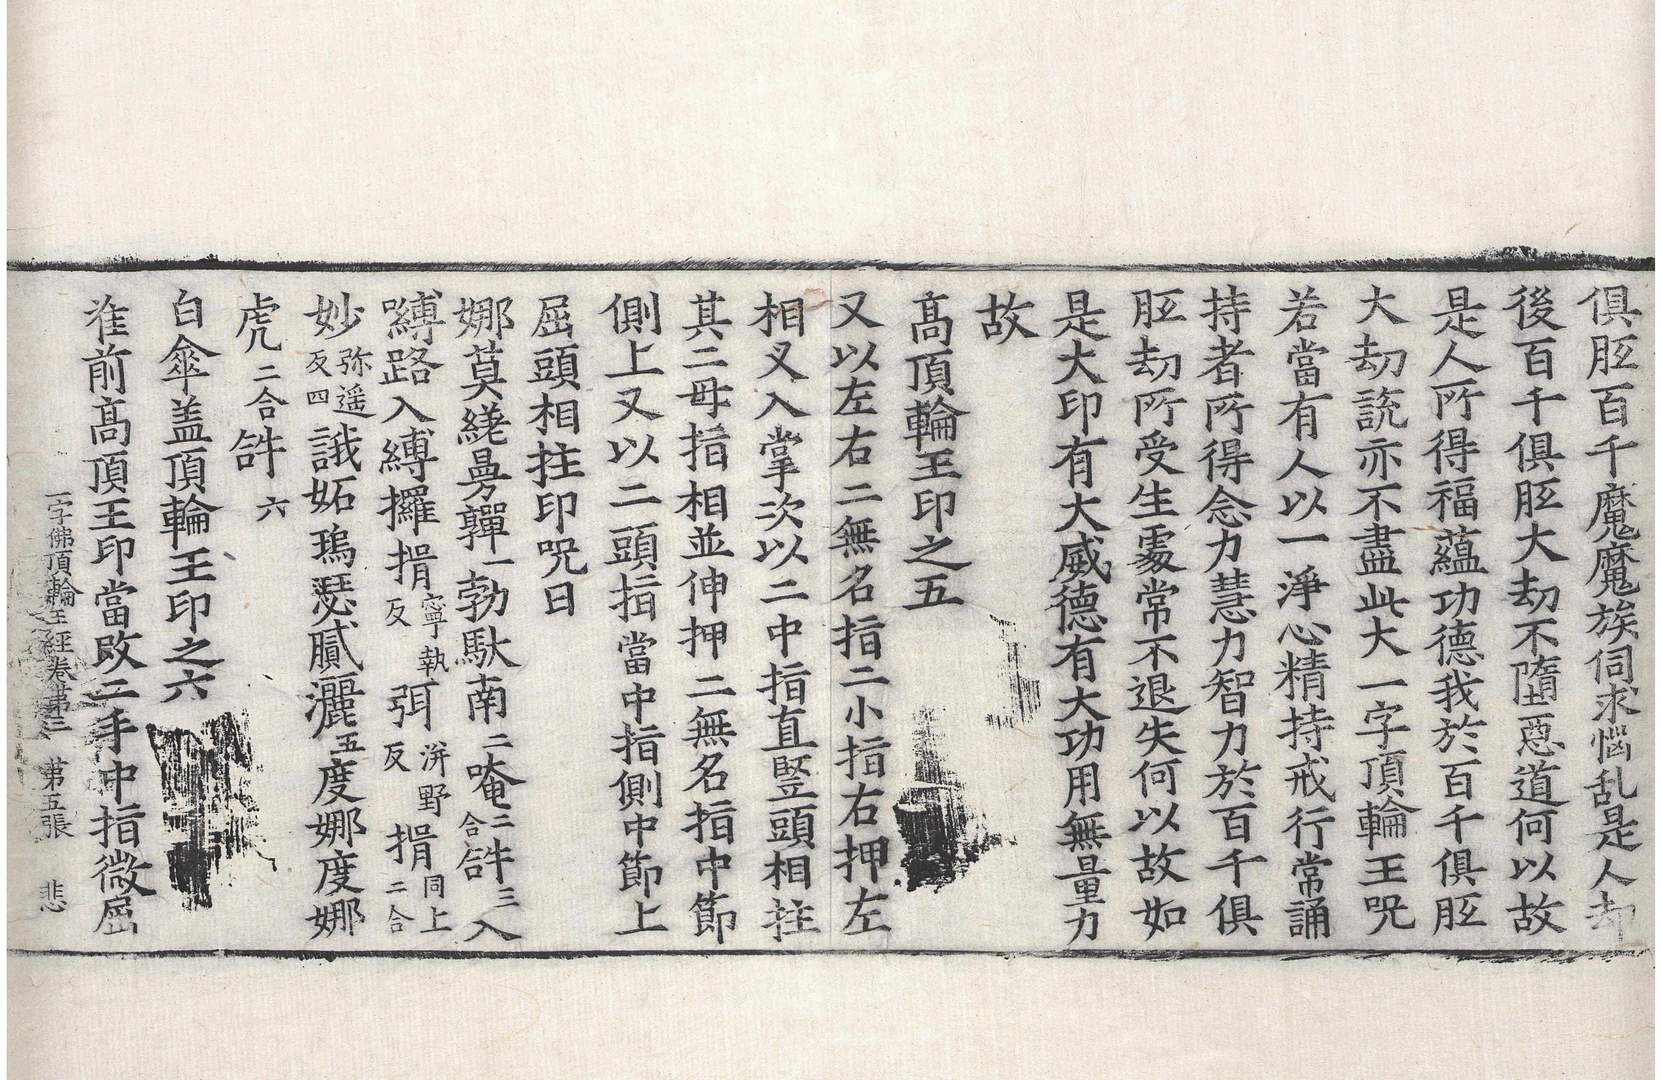 俱胝百千魔魔族伺求惱乱是人却
後百千俱胝大劫不墮惡道何以故
是人所得福蘊功德我於百千俱胝
大劫說亦不盡此大一字頂輪王咒
若當有人以一淨心精持戒行常誦
持者所得念力慧力智力於百千俱
胝劫所受生處常不退失何以故如
是大印有大威德有大功用無量力
故
高頂輪王印之五
又以左右二無名指二小指右押左
相叉入掌次以二中指直豎頭相拄
其二母指相並伸押二無名指中節
側上又以二頭指當中指側中節上
屈頭相拄印咒曰
娜莫縒曼嚲一勃馱南二唵二合𤙖三入
嚩路入嚩攞捐寧執反弭洴野反捐同上二合
妙弥遥反四誐妬瑦瑟膩灑五度娜度娜
虎二合𤙖六
白傘盖頂輪王印之六
准前高頂王印當改二手中指微屈
一字佛頂輪王經卷第三 第五張 悲